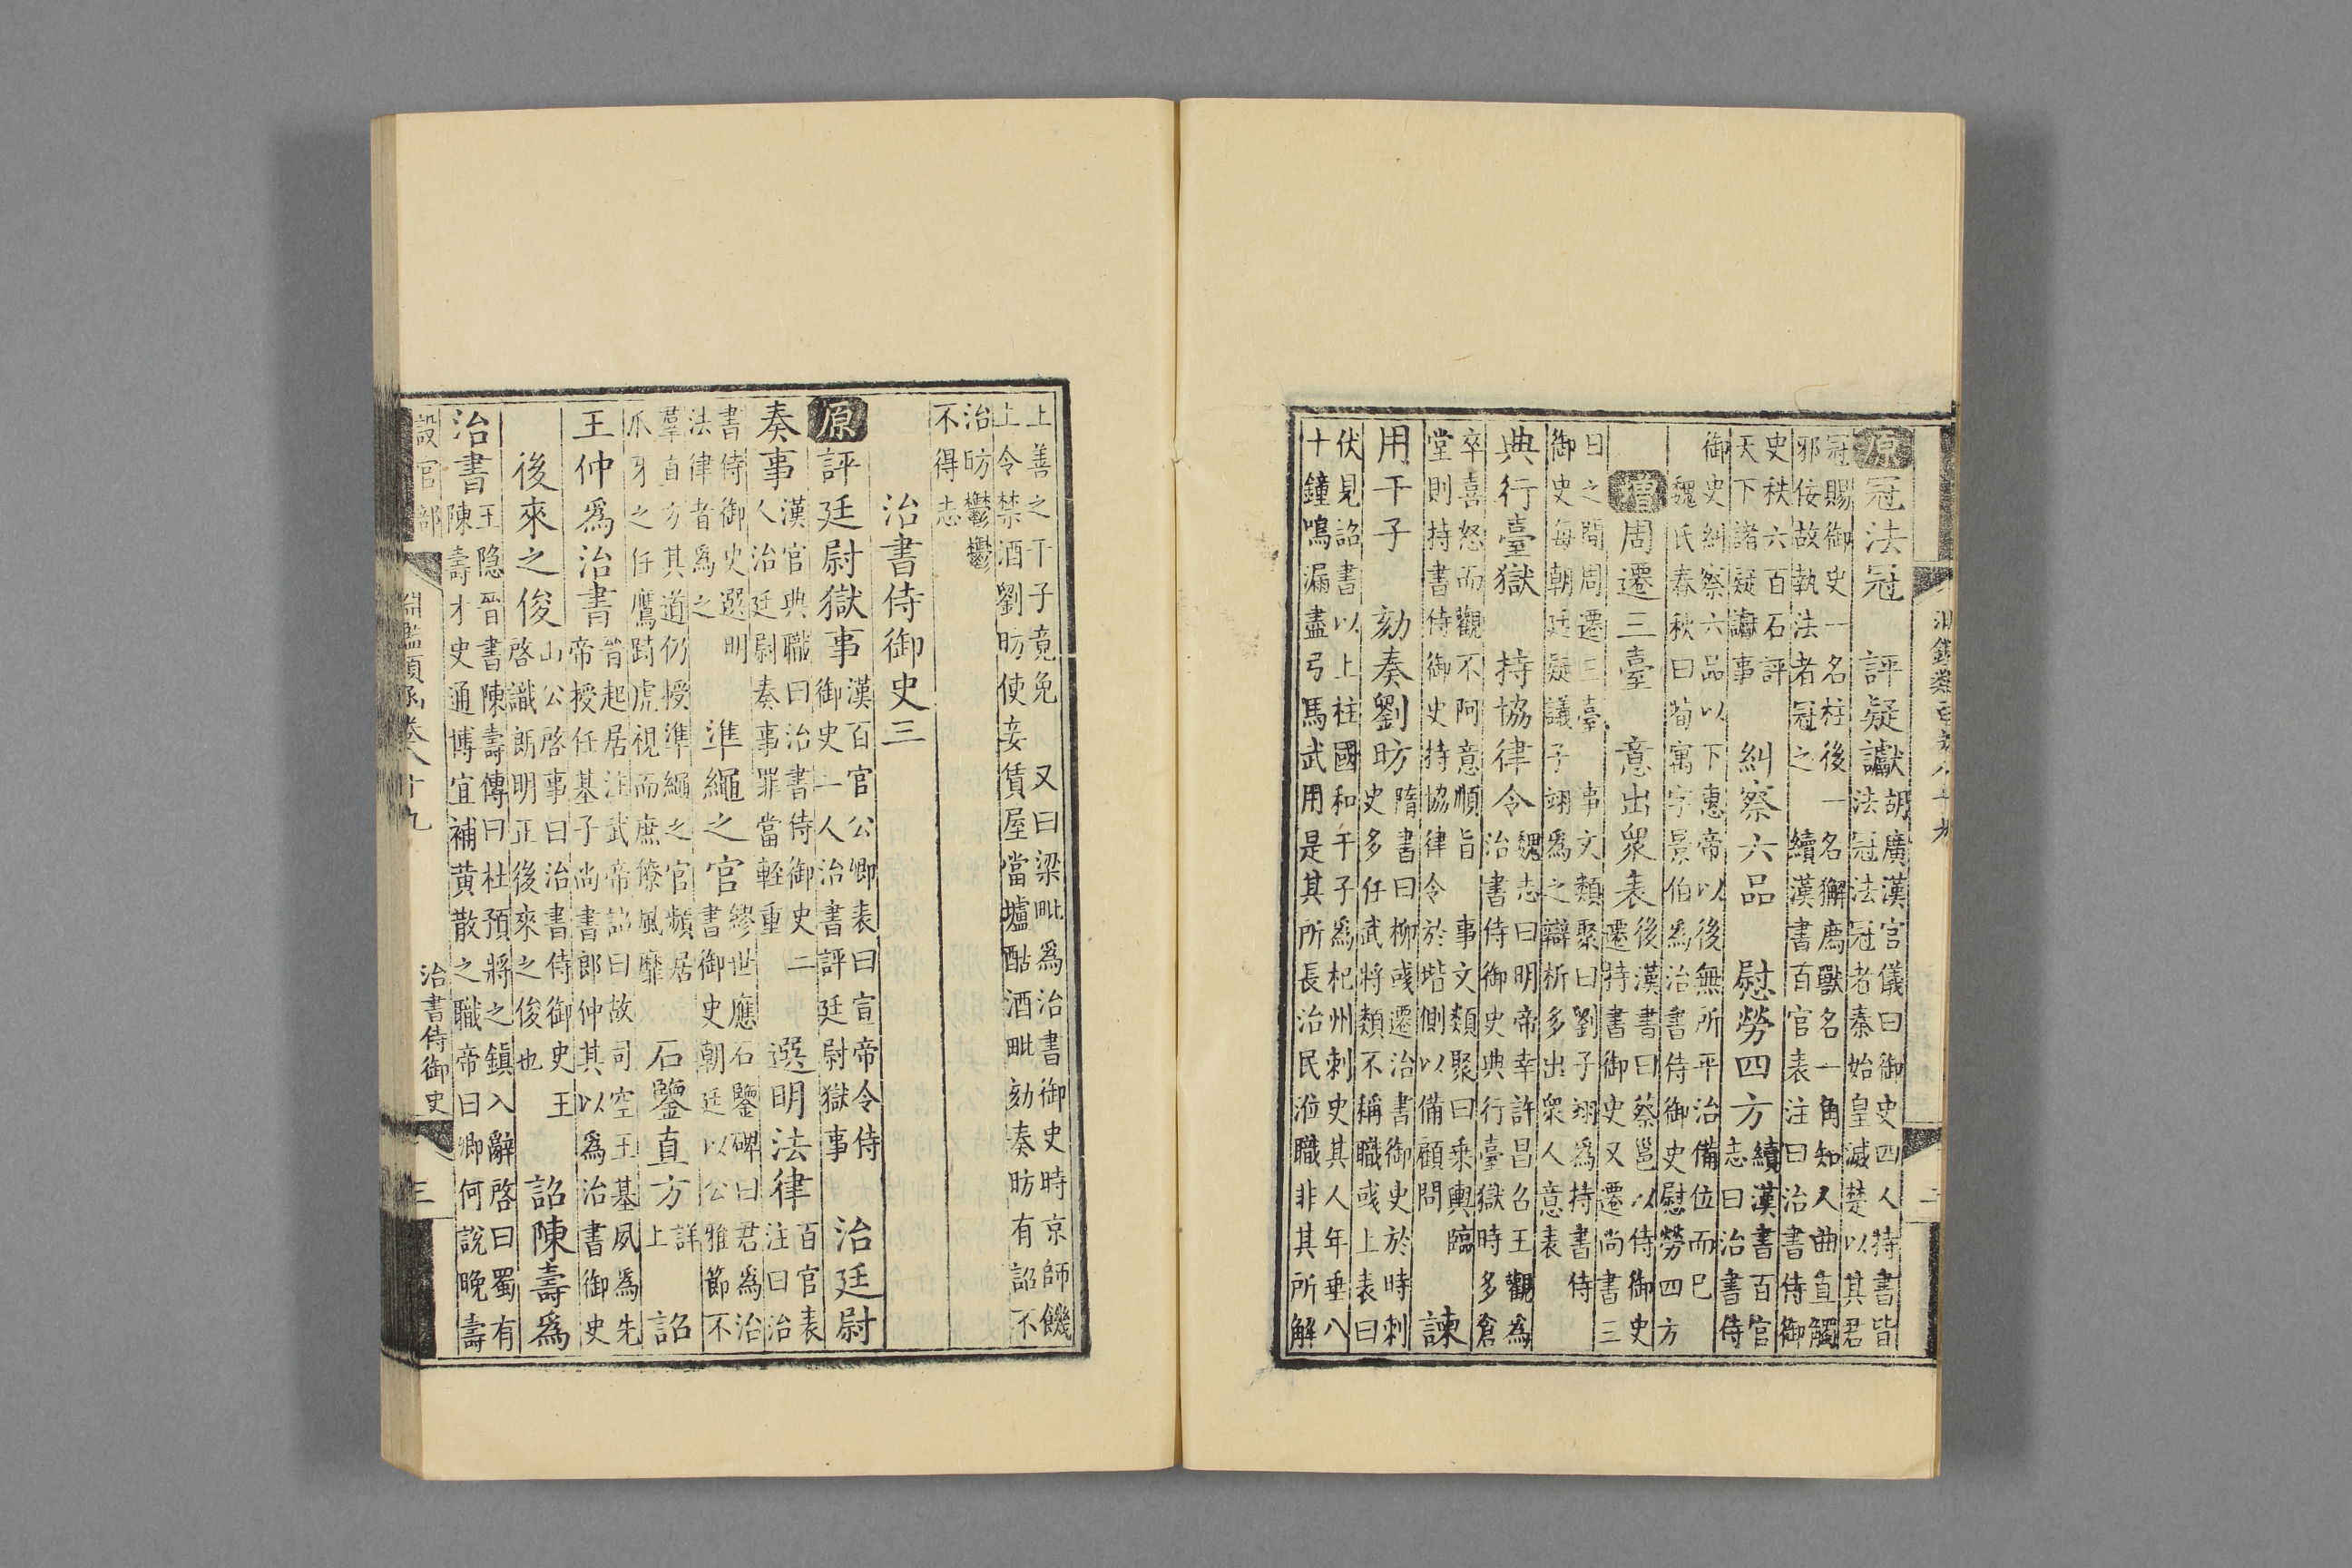 原冠法冠　評疑讞胡廣漢官儀曰御史四人持書皆
法冠法冠者秦始皇滅楚以其君
冠賜御史一名柱後一名獬廌獸名一角知人曲直觸
邪佞故執法者冠之　續漢書百官表注曰治書侍御
史秩六百石評
天下諸疑讞事　糾察六品　慰勞四方續漢書百官
志曰治書侍
御史糾察六品以下惠帝以後無所平治備位而巳
魏氏春秋曰荀寓字景伯為治書侍御史慰勞四方
增周遷三臺　意出衆表後漢書曰蔡邕以侍御史
遷持書御史又遷尚書三
日之間周遷三臺　事文類聚曰劉子翊為持書侍
御史每朝廷疑議子翊為之辯析多出衆人意表
典行臺獄　持協律令魏志曰明帝幸許昌召王觀為
治書侍御史典行臺獄時多倉
卒喜怒而觀不阿意順旨　事文類聚曰乗輿臨
堂則持書侍御史持協律令於堦側以備顧問　諫
用干子　劾奏劉昉隋書曰柳彧遷治書御史於時刺
史多任武將類不稱職彧上表曰
伏見詔書以上柱國和干子為杞州刺史其人年垂八
十鐘鳴漏盡弓馬武用是其所長治民涖職非其所解
上善之干子竟免　又曰梁毗為治書御史時京師饑
上令禁酒劉昉使妾賃屋當壚酤酒毗劾奏昉有詔不
治昉鬱鬱
不得志
治書侍御史三
原評廷尉獄事漢百官公卿表曰宣帝令侍
御史二人治書評廷尉獄事　治廷尉
奏事漢官典職曰治書侍御史二
人治廷尉奏事罪當輕重　選明法律百官表
注曰治
書侍御史選明
法律者為之　準繩之官繆世應石鑒碑曰君為治
書御史朝廷以公雅節不
羣直方其道仍授準繩之官頻居
爪牙之任鷹跱虎視而庶僚風靡　石鑒直方詳
上　詔
王仲為治書晉起居注武帝詔曰故司空王基夙為先
帝授任基子尚書郎仲其以為治書御史
後來之俊山公啓事曰治書侍御史王
啓識朗明正後來之俊也　詔陳壽為
治書王隐晉書陳壽傳曰杜預將之鎮入辭啓曰蜀有
陳壽才史通博宜補黄散之職帝曰卿何說晚壽
設官部　淵鑑類函卷八十九　治書侍御史　三